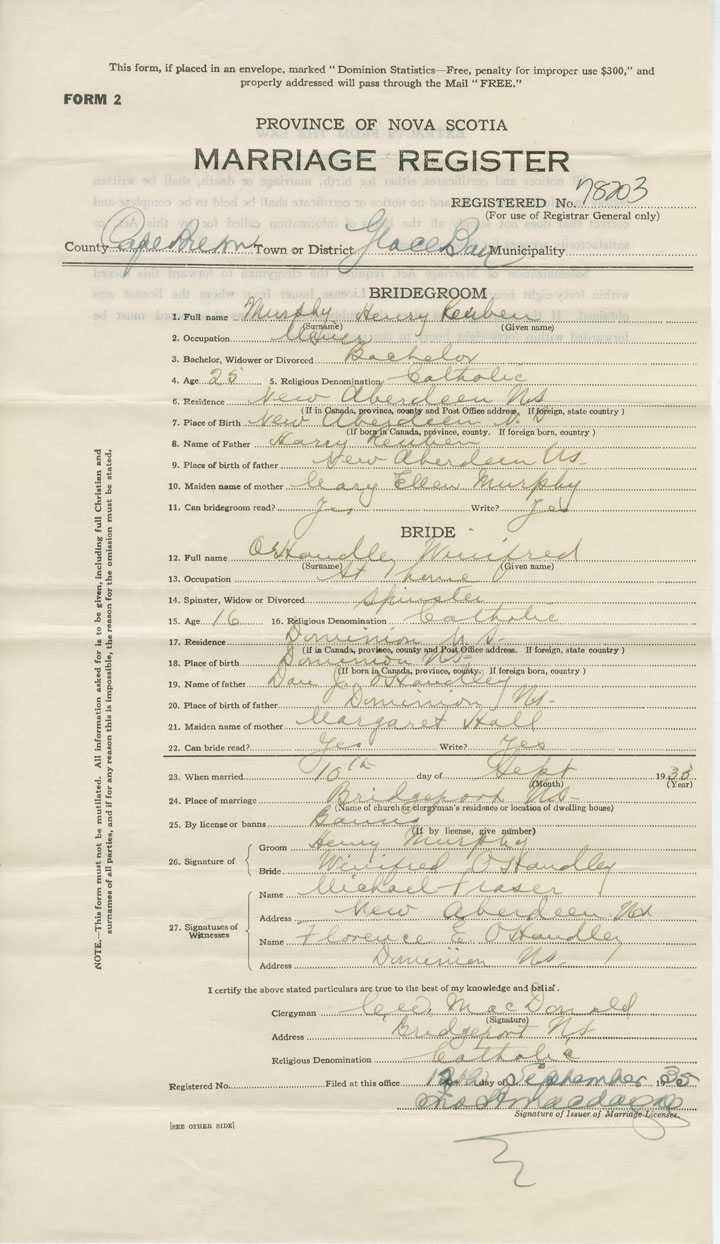 This form, if placed in an envelope, marked " Dominion Statistics—Free, penalty for improper use $300," and
properly addressed will pass through the Mail " FREE."
FORM 2
PROVINCE OF NOVA SCOTIA
MARRIAGE REGISTER
REGISTERED No. 78203
(For use of Registrar General only)
County Cape Breton Town or District Glace Bay Municipality
BRIDEGROOM
1. Full name Murphy Henry Reuben
(Surname) (Given name)
2. Occupation Miner
3. Bachelor, Widower or Divorced Bachelor
4. Age 25 5. Religious Denomination Catholic
6. Residence New Aberdeen NS
(If in Canada, province, county and Post Office address. If foreign, state country )
7. Place of Birth New Aberdeen N.S
(If born in Canada, province, county. If foreign born, country )
8. Name of Father Harry Reuben
9. Place of birth of father New Aberdeen Ns-
10. Maiden name of mother Mary Ellen Murphy
11. Can bridegroom read? Yes Write? Yes
BRIDE
12. Full name O'Handley Winifred
(Surname) (Given name)
13. Occupation At Home
14. Spinster, Widow or Divorced Spinster
15. Age 16 16. Religious Denomination Catholic
17. Residence Dominion N.S-
(If in Canada, province, county and Post Office address. If foreign, state country )
18. Place of birth Dominion NS-
(If born in Canada, province, county. If foreign born, country )
19. Name of father Dan J. O'Handley
20. Place of birth of father Dominion Ns-
21. Maiden name of mother Margaret Hall
22. Can bride read? Yes Write? Yes
23. When married 10th day of Sept 1935
(Month) (Year)
24. Place of marriage Bridgeport Ns-
(Name of church or clergyman's residence or location of dwelling house)
25. By license or banns Banns
(If by license, give number)
26. Signature of Groom Henry Murphy
Bride Winifred O'Handley
27. Signatures of Witnesses Name Michael Fraser
Address New Aberdeen Ns
Name Florence E. O'Handley
Address Dominion Ns-
I certify the above stated particulars are true to the best of my knowledge and belief.
Clergyman MacDonald
(Signature)
Address Bridgeport Ns
Religious Denomination Catholic
Registered No. Filed at this office 12th day of September 1935
Signature of Issuer of Marriage Licenses.
[SEE OTHER SIDE]
NOTE.—This form must not be mutilated. All information asked for is to be given, including full Christian and
surnames of all parties, and if for any reason this is impossible, the reason for the omission must be stated.